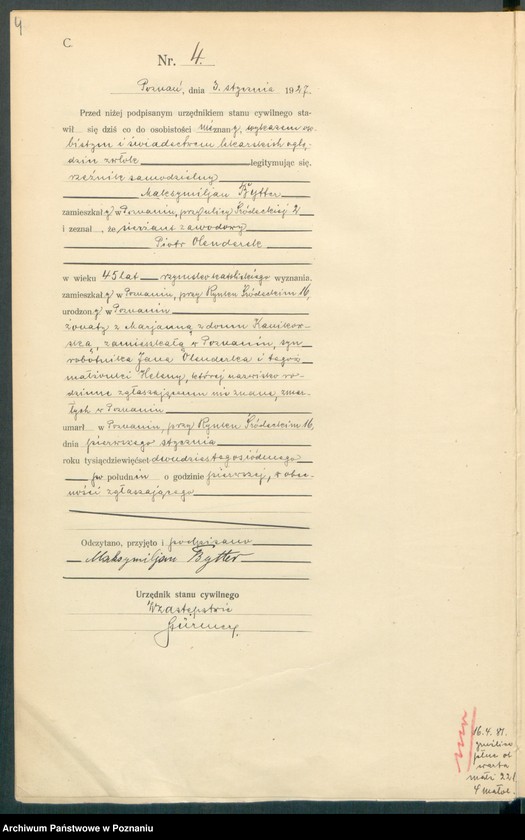 4
C.
Nr. 4.
Poznań, dnia 3. stycznia 1927.
Przed niżej podpisanym urzędnikiem stanu cywilnego sta-
wił się dziś co do osobistości nieznany, wykazem oso-
bistym i świadectwem lekarskich oglę-
dzin zwłok legitymując się,
rzeźnik samodzielny
Maksymiljan Bytter
zamieszkały w Poznaniu, przy ulicy Śródeckiej 2
i zeznał, że sierżant zawodowy
Piotr Olenderek
w wieku 45 lat rzymsko katolickiego wyznania,
zamieszkały w Poznaniu, przy Rynku Śródeckim 16,
urodzony w Poznaniu
żonaty z Marjanną z domu
zamieszkałą w Poznaniu, syn
robotnika Jana Olenderka i tegoż
małżonki Heleny, której nazwisko ro-
dzinne zgłaszającemu nie znane, zmar-
łych w Poznaniu
umarł w Poznaniu, przy Rynku Śródeckim 16,
dnia pierwszego stycznia
roku tysiącdziewięćset dwudziestegosiódmego
po południu o godzinie pierwszej, w obec-
ności zgłaszającego
Odczytano, przyjęto i podpisano
Maksymiljan Bytter
Urzędnik stanu cywilnego
W zastępstwie
16.4.81.
4
Archiwum Państwowe w Poznaniu